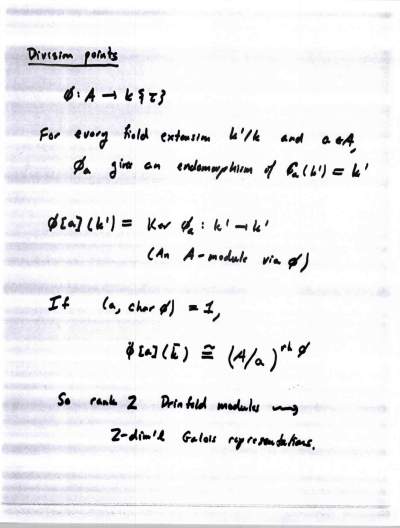 Division points
φ: A → k{τ}
For every field extension k'/k and a∈A,
φₐ gives an endomorphism of Gₐ(k') = k'
φ[a](k') = Ker φₐ : k' → k'
(An A-module via φ)
If (a, char φ) = 1,
φ[a](k̄) ≅ (A/a)^{rk φ}
So rank 2 Drinfeld modules ⇝
2-dim'l Galois representations.